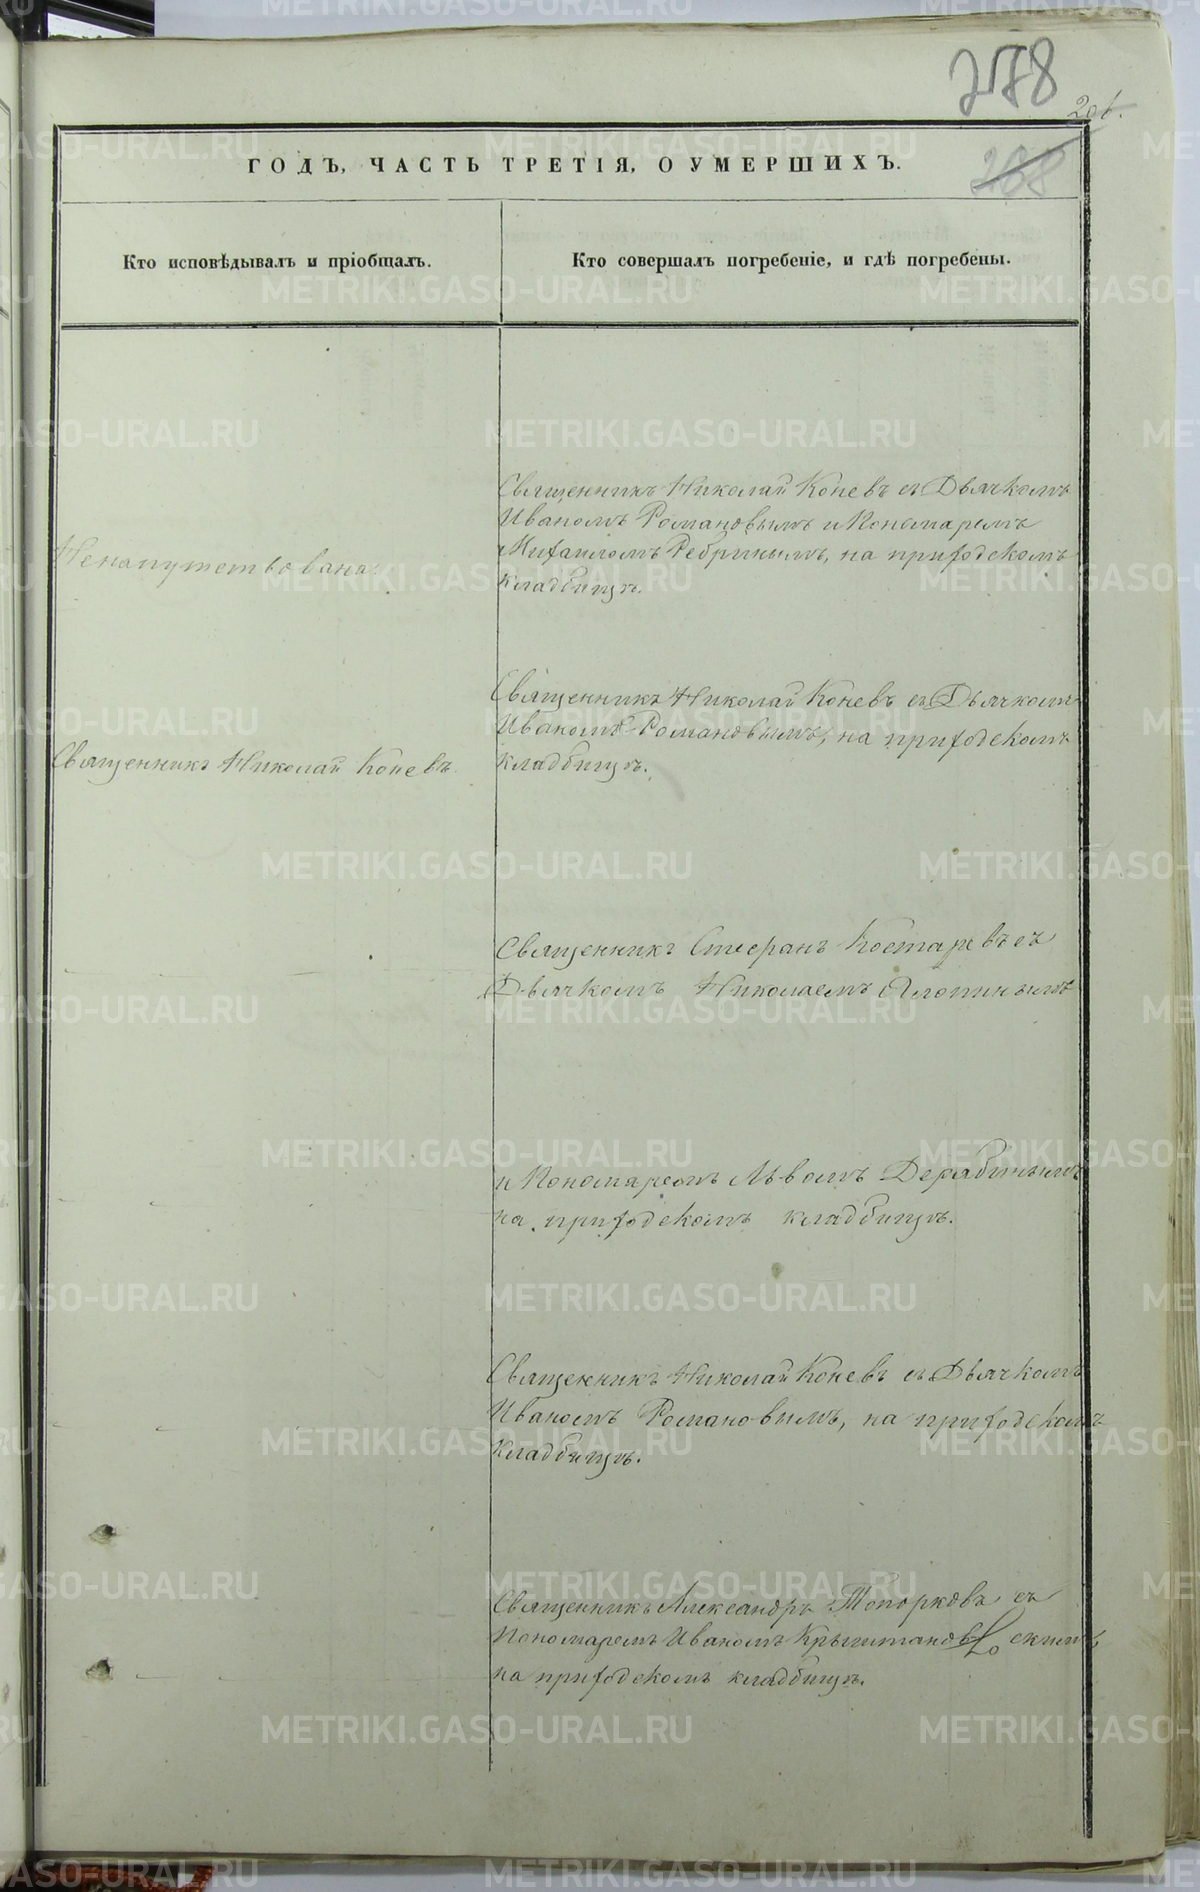 278
206.
268
ГОДЪ, ЧАСТЬ ТРЕТІЯ, О УМЕРШИХЪ.
Кто исповѣдывалъ и пріобщалъ.
Кто совершалъ погребеніе, и гдѣ погребены.
Священникъ Николай Коневъ съ Дьячкомъ
Иваномъ Романовымъ и Пономаремъ
Михаиломъ Ребринымъ, на приходскомъ
кладбищѣ.
Ненапутствована.
Священникъ Николай Коневъ съ Дьячкомъ
Иваномъ Романовымъ, на приходскомъ
кладбищѣ.
Священникъ Николай Коневъ.
Священникъ Стефанъ Костаревъ съ
Дьячкомъ Николаемъ
и Пономаремъ Львомъ Дерябинымъ
на приходскомъ кладбищѣ.
Священникъ Николай Коневъ съ Дьячкомъ
Иваномъ Романовымъ, на приходскомъ
кладбищѣ.
Священникъ Александръ Топорковъ съ
Пономаремъ Иваномъ
на приходскомъ кладбищѣ.
METRIKI.GASO-URAL.RU